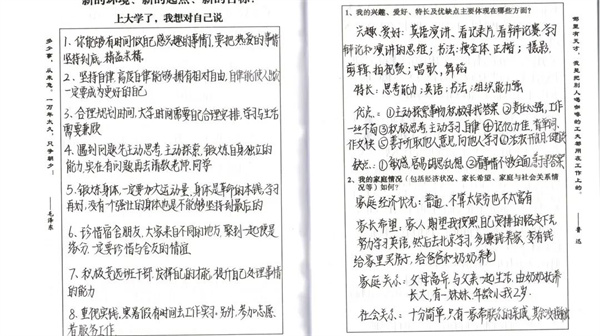 新的环境、新的起点、新的目标!
上大学了，我想对自己说
1、你能够有时间做自己感兴趣的事情，要把热爱的事情
坚持到底，精益求精。
2、坚持自律，高度自律能够拥有相对自由，自律能使人
一定要成为更好的自己
3、合理规划时间，大学时间需要自己合理安排，学习与生活
需要兼顾
4、遇到问题先主动思考，主动探索，锻炼自身独立的
能力，实在有问题再去请教老师，同学
5、锻炼身体，一定要加大运动量，身体是革命的本钱，学习
再好，没有个强壮的身体也是不能够坚持到最后的
6、珍惜宿舍朋友，大家来自不同的地方，聚到一起便是
缘分，一定要珍惜与舍友的情谊
7、积极竞选班干部，发挥自己的才能，提升自己处理事情
的能力
8、重视实践，寒暑假有时间去工作实习，另外，参加志愿
者服务工作
多少事，从来急，一万年太久，只争朝夕。
——毛泽东
1、我的兴趣、爱好、特长及优缺点主要体现在哪些方面?
兴趣、爱好：英语演讲、看记录片、看辩论赛，学习
辩论和演讲的思维；书法：瘦金体，正楷；摄影，
剪辑，拍视频；唱歌，舞蹈
特长：思辨能力；英语；书法；组织能力强
优点：①主动探索事物，积极寻找答案 ②责任心强，工作
一丝不苟 ③积极思考，主动学习，自律 ④记忆力佳，背单词、
作文快 ⑤善于听取他人意见，向他人学习
缺点：①敏感，容易胡思乱想 ②看事情不够全面
2、我的家庭情况（包括经济状况、家长希望、家庭与社会关系情
况等）如何?
家庭经济状况：普通，不算太贫穷也不太富有
家长希望：家人期望我按照自己安排的轻走下去
努力学习英语，然后去北京学习，多赚钱养家，要有钱
给家里买房子，给爸爸和奶奶养老
家庭关系：父母离异，与父亲一起生活，由奶奶抚养
长大，有一妹妹，年龄小我2岁
社会关系：十分简单，只有一家养联众的亲戚
哪里有天才，我是把别人喝咖啡的工夫都用在工作上的。
——鲁迅